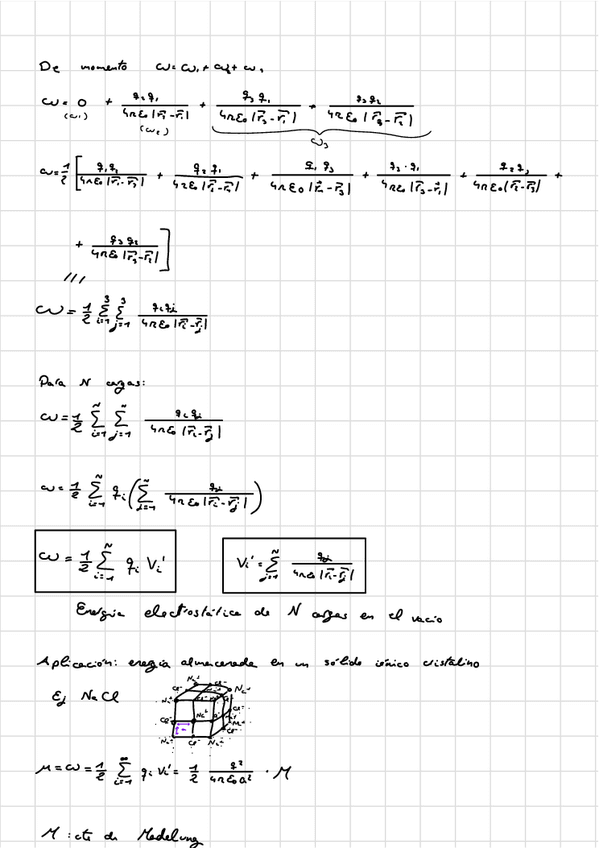 De momento ω = ω₁ + ω₂ + ω₃
ω = 0 (ω₁) + q₂q₁ / 4πε₀|r₂-r₁| (ω₂) + q₃q₁ / 4πε₀|r₃-r₁| + q₃q₂ / 4πε₀|r₃-r₂|
ω₃
ω = 1/2 [ q₁q₂ / 4πε₀|r₁-r₂| + q₂q₁ / 4πε₀|r₂-r₁| + q₁q₃ / 4πε₀|r₁-r₃| + q₃·q₁ / 4πε₀|r₃-r₁| + q₂q₃ / 4πε₀|r₂-r₃| +
+ q₃q₂ / 4πε₀|r₃-r₂| ]
///
ω = 1/2 Σ_{i=1}^{3} Σ_{j=1}^{3} qᵢqⱼ / 4πε₀|rᵢ-rⱼ|
Para N cargas:
ω = 1/2 Σ_{i=1}^{N} Σ_{j=1}^{N} qᵢqⱼ / 4πε₀|rᵢ-rⱼ|
ω = 1/2 Σ_{i=1}^{N} qᵢ ( Σ_{j=1}^{N} qⱼ / 4πε₀|rᵢ-rⱼ| )
ω = 1/2 Σ_{i=1}^{N} qᵢ Vᵢ' Vᵢ' = Σ_{j=1}^{N} qⱼ / 4πε₀|rᵢ-rⱼ|
Energía electrostática de N cargas en el vacío
Aplicación: energía almacenada en un sólido iónico cristalino
Ej NaCl
μ = ω = 1/2 Σ_{i=1}^{∞} qᵢ Vᵢ' = 1/2 q² / 4πε₀a² · M
M : cte de Madelung